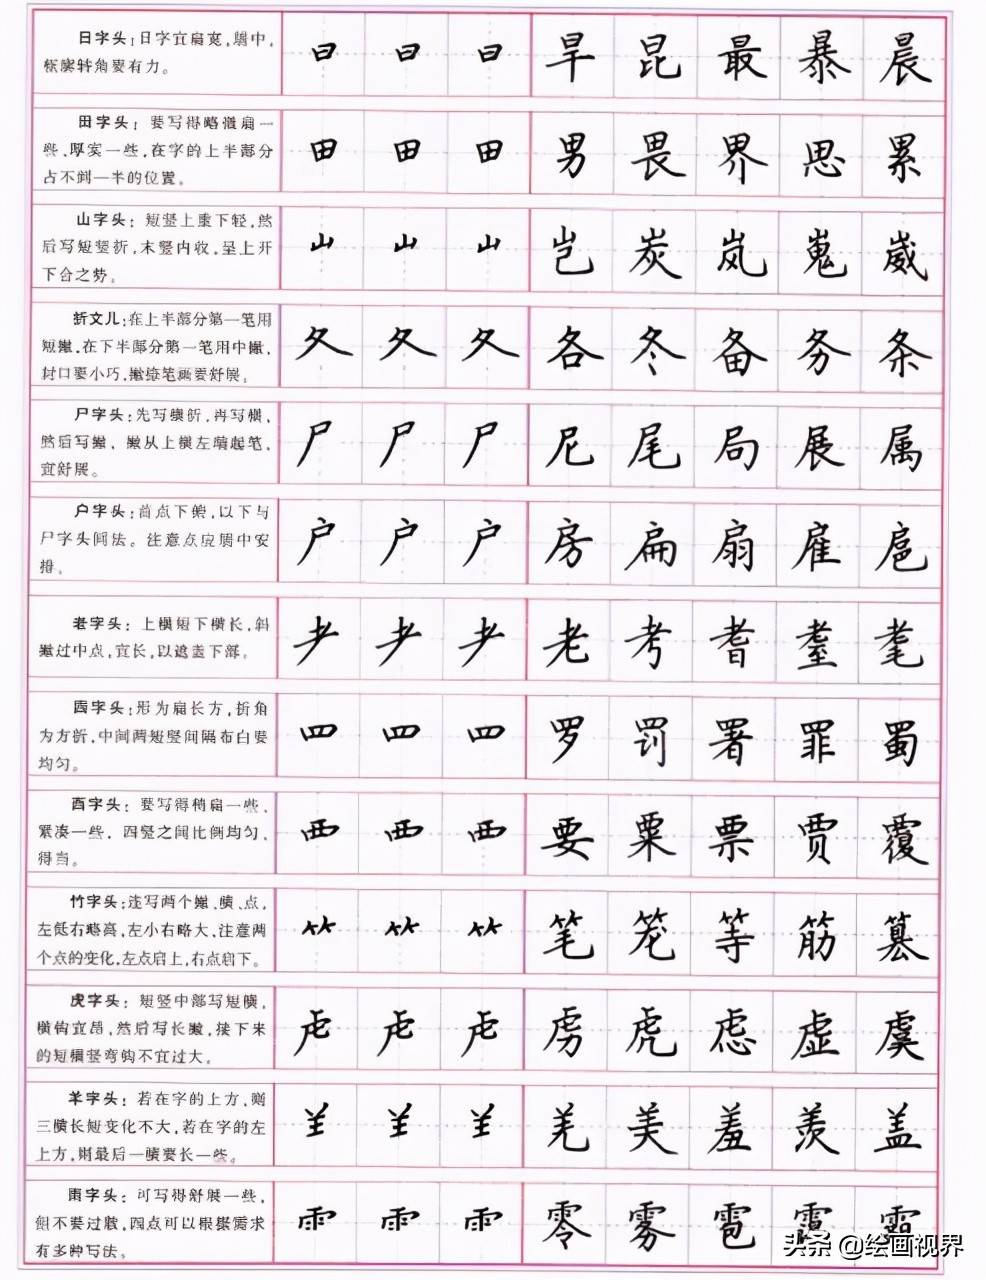 日字头：日字宜扁宽，居中， 日 日 日 旱 昆 最 暴 晨
横撇转角要有力。
田字头：要写得略微扁一 田 田 田 男 畏 界 思 累
些，厚实一些，在字的上半部分
占不到一半的位置。
山字头：短竖上重下轻，然 山 山 山 岂 炭 岚 嵬 崴
后写短竖折，末竖内收，呈上开
下合之势。
折文儿：在上半部分第一笔用 夂 夂 夂 各 冬 备 务 条
短撇，在下半部分第一笔用中撇，
封口要小巧，撇捺笔画要舒展。
尸字头：先写横折，再写横， 尸 尸 尸 尼 尾 局 展 属
然后写撇，撇从上横左端起笔，
宜舒展。
户字头：首点下俯，以下与 户 户 户 房 扁 扇 雇 扈
尸字头同法。注意点应居中安
排。
老字头：上横短下横长，斜 耂 耂 耂 老 考 耆 耋 耄
撇过中点，宜长，以遮盖下部。
四字头：形为扁长方，折角 罒 罒 罒 罗 罚 署 罪 蜀
为方折，中间两短竖间隔布白要
均匀。
西字头：要写得稍扁一些， 覀 覀 覀 要 粟 票 贾 覆
紧凑一些，四竖之间比例均匀，
得当。
竹字头：连写两个撇、横、点， ⺮ ⺮ ⺮ 笔 笼 等 筋 篡
左低右略高，左小右略大，注意两
个点的变化，左点启上，右点启下。
虎字头：短竖中部写短横， 虍 虍 虍 虏 虎 虑 虚 虞
横钩宜昂，然后写长撇，接下来
的短横竖弯钩不宜过大。
羊字头：若在字的上方，则 𦍌 𦍌 𦍌 羌 美 羞 羡 盖
三横长短变化不大，若在字的左
上方，则最后一横要长一些。
雨字头：可写得舒展一些， ⻗ ⻗ ⻗ 零 雾 雹 霜
但不要过散，四点可以根据需求
有多种写法。
头条 @绘画视界